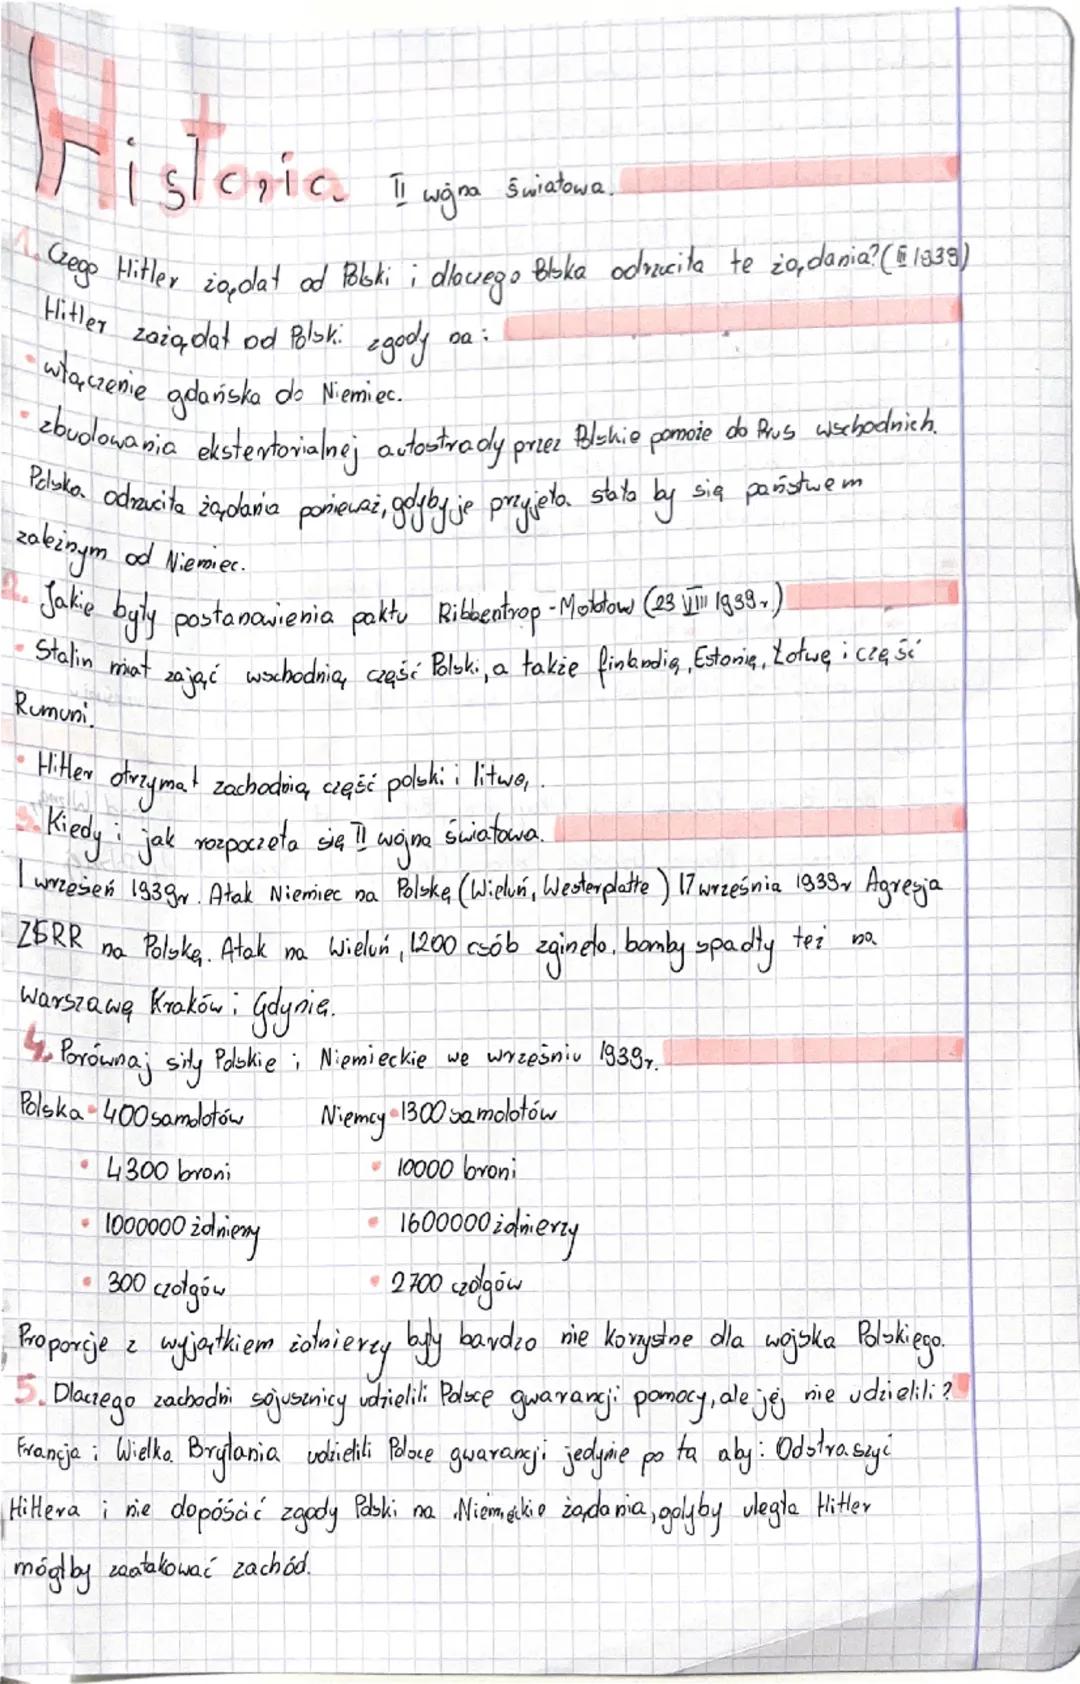 Historia II wojna światowa.
1. Czego Hitler żądał od Polski i dlaczego Polska odrzuciła te żądania? (III 1939)
Hitler zażądał od Polski zgody na:
• włączenie gdańska do Niemiec.
• zbudowania ekstertorialnej autostrady przez Polskie pomoże do Prus wschodnich.
Polska odrzuciła żądania ponieważ, gdyby je przyjęła stała by się państwem
zależnym od Niemiec.
2. Jakie były postanowienia paktu Ribbentrop-Mołotow (23 VIII 1939r.)
• Stalin miał zająć wschodnią część Polski, a także finlandię, Estonię, Łotwę i część
Rumuni.
• Hitler otrzymał zachodnią część polski i litwę.
3. Kiedy i jak rozpoczeła się II wojna światowa.
1 wrzesień 1939r. Atak Niemiec na Polskę (Wieluń, Westerplatte) 17 września 1939r Agresja
ZSRR na Polskę. Atak na Wieluń, 1200 osób zgineło, bomby spadły też na
Warszawę Kraków i Gdynię.
4. Porównaj siły Polskie i Niemieckie we wrześniu 1939r.
Polska • 400 samolotów Niemcy • 1300 samolotów
• 4300 broni • 10000 broni
• 1000000 żołnierzy • 1600000 żołnierzy
• 300 czołgów • 2700 czołgów
Proporcje z wyjątkiem żołnierzy były bardzo nie korzystne dla wojska Polskiego.
5. Dlaczego zachodni sojusznicy udzielili Polsce gwarancji pomocy, ale jej nie udzielili?
Francja i Wielka Brytania udzielili Polsce gwarancji jedynie po ta aby: Odstraszyć
Hitlera i nie dopóścić zgody Polski na Niemieckie żądania, gdyby uległa Hitler
mógłby zaatakować zachód.